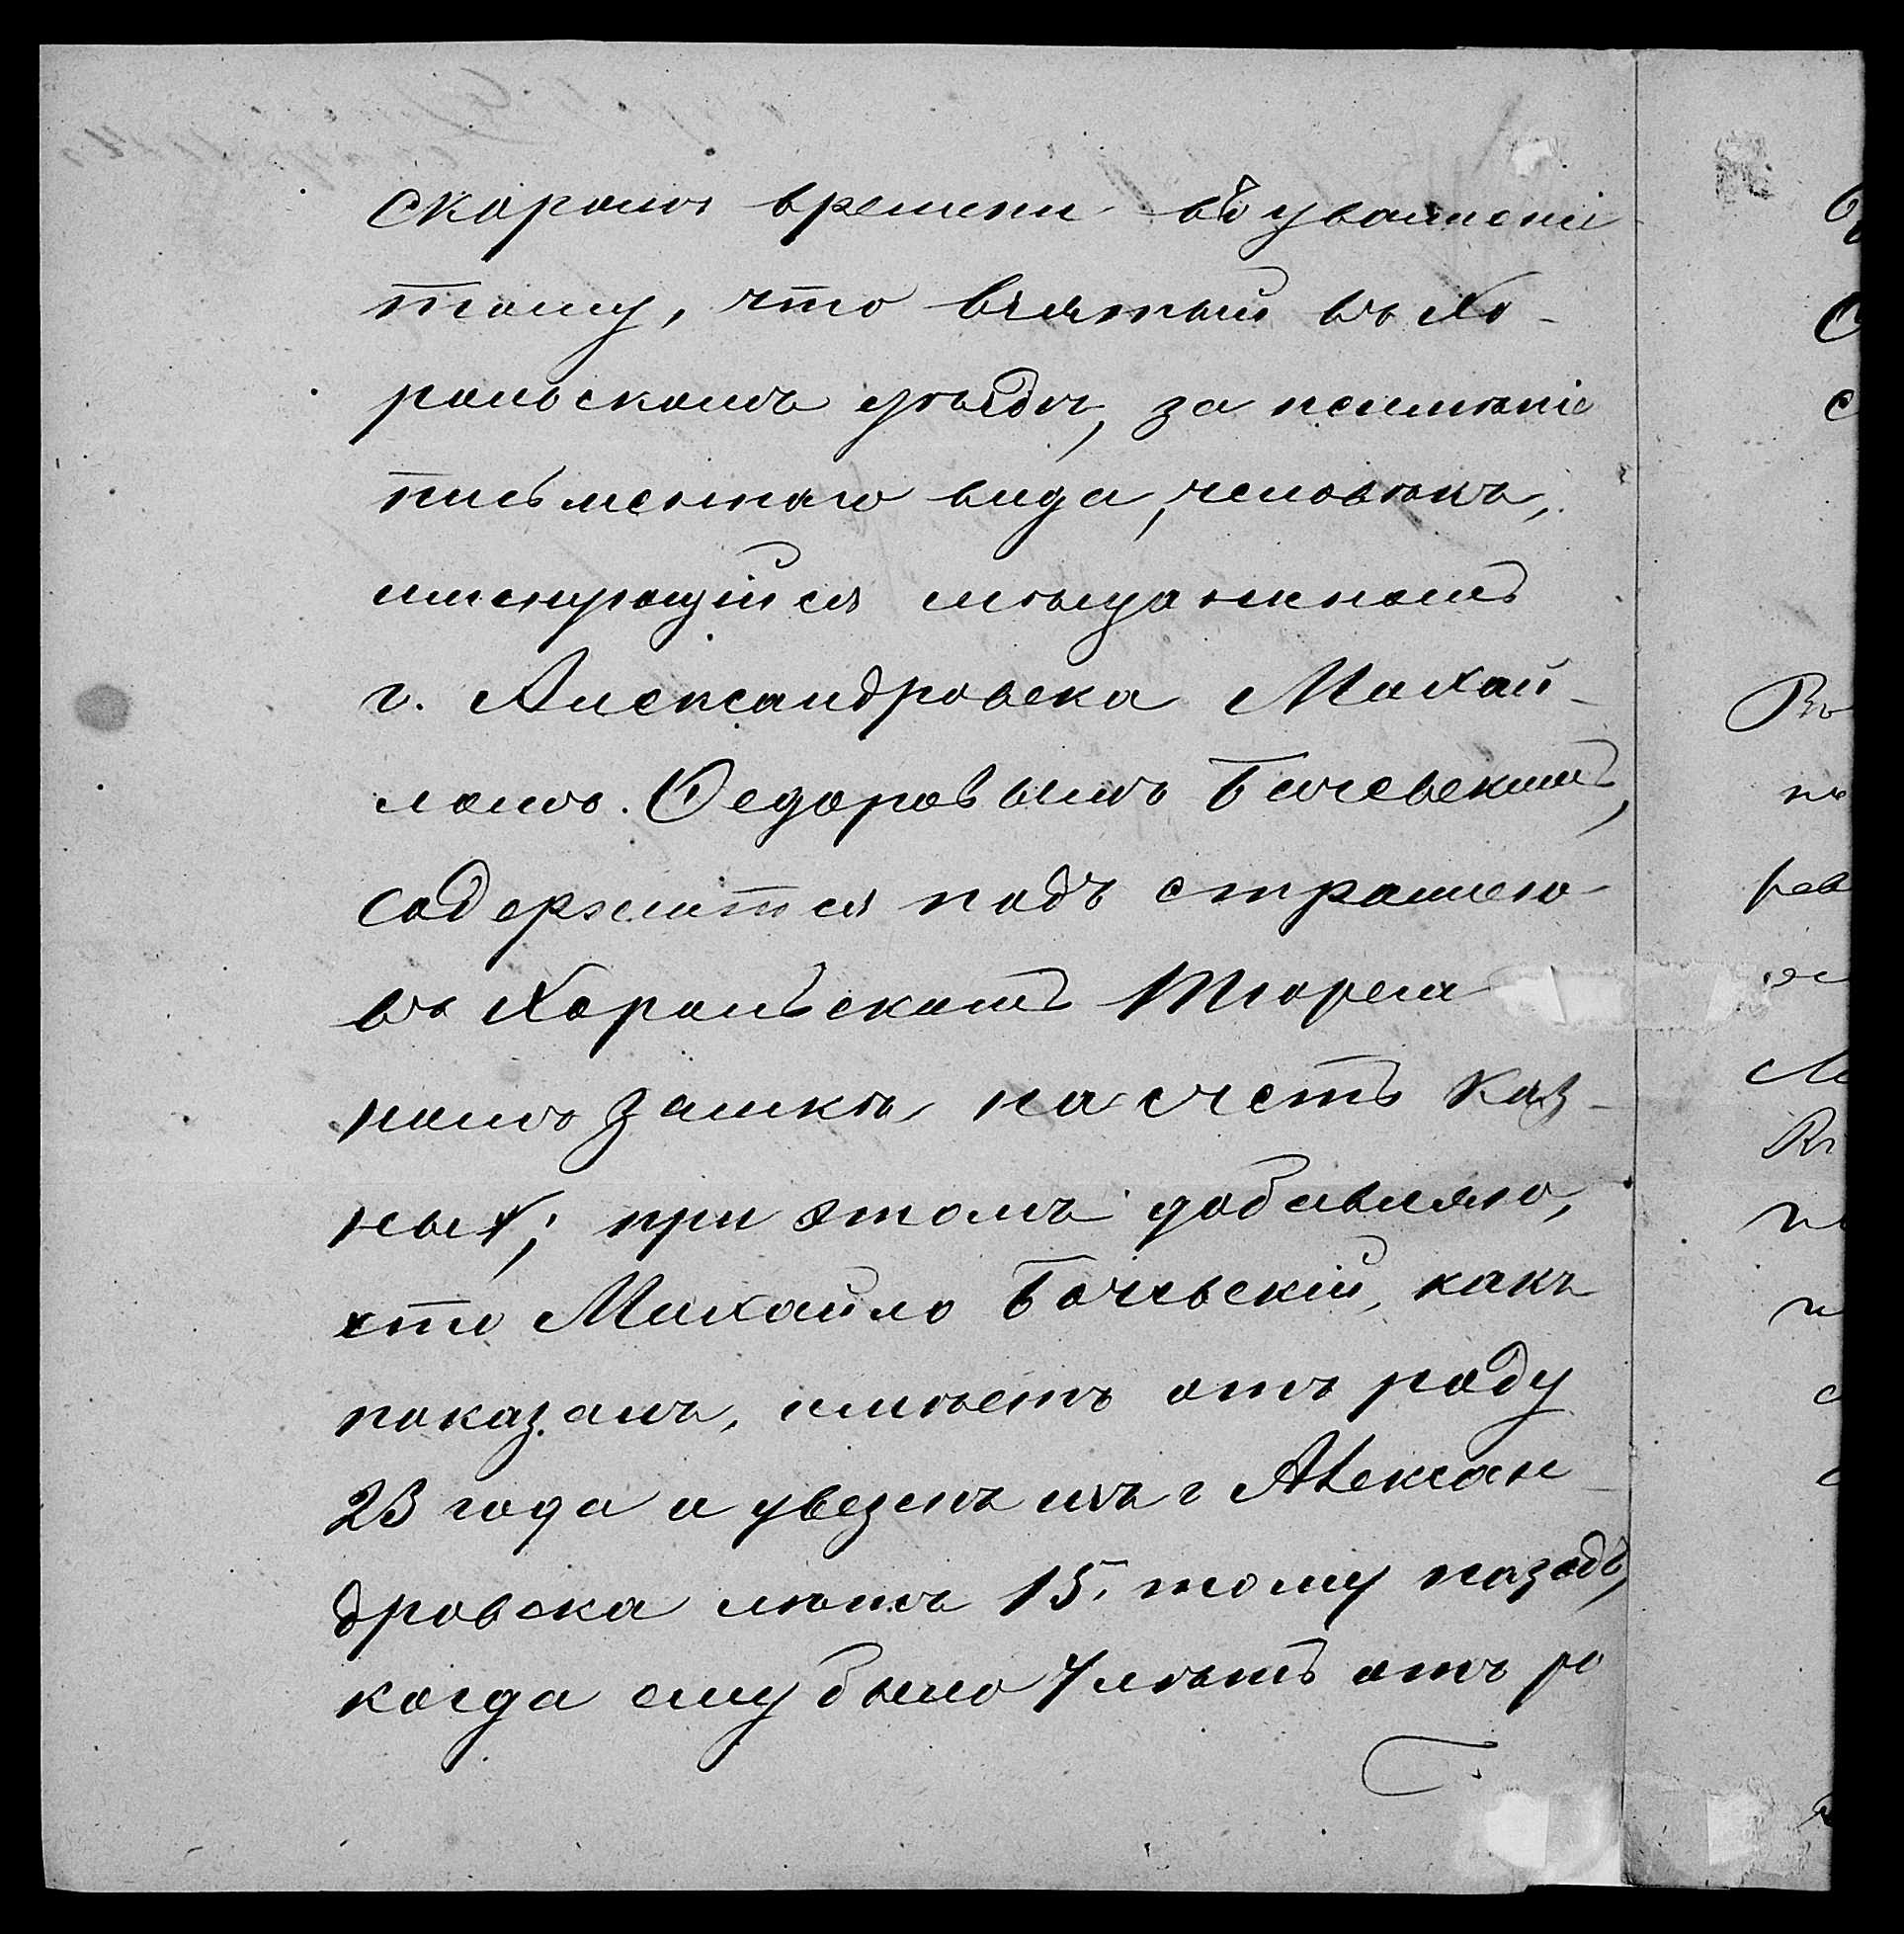 скоромъ времени въ уваженіи
тому, что взятый въ Хо-
рольскомъ уѣздѣ, за неимѣніе
письменнаго вида, человѣкъ,
именующійся мѣщаниномъ
г. Александровска Михай-
ломъ Федоровымъ Бочевскимъ,
содержится подъ стражею
въ Хорольскомъ Тюрем
номъ замкѣ на счетъ каз-
ны; при этомъ добавляю,
что Михайло Бочевскій, какъ
показалъ, имѣетъ отъ роду
23 года и увезенъ изъ г Алексан-
дровска лѣтъ 15, тому назадъ,
когда ему было 7 лѣтъ отъ ро